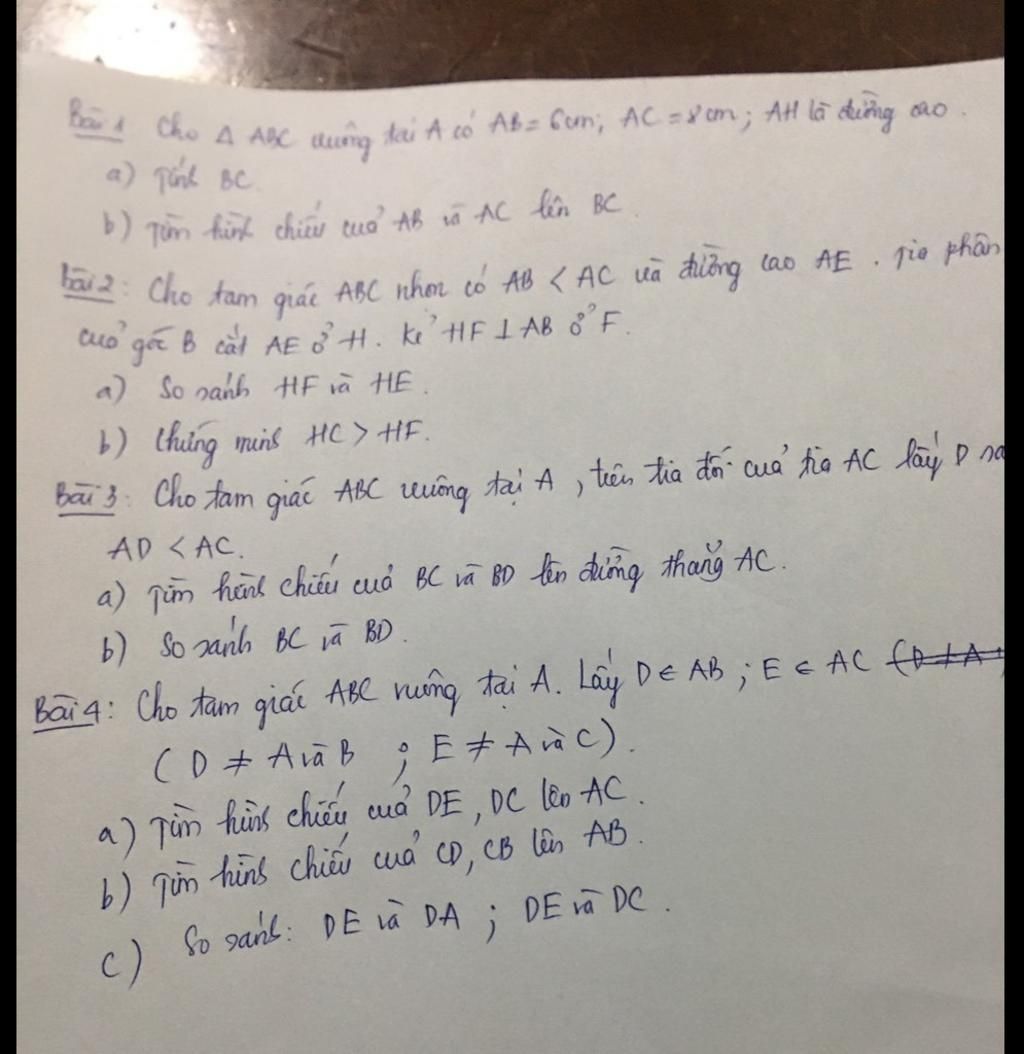 Bài 1 Cho Δ ABC vuông tại A có AB = 6cm; AC = 8cm; AH là đường cao.
a) Tính BC.
b) Tìm hình chiếu của AB và AC lên BC.
Bài 2: Cho tam giác ABC nhọn có AB < AC và đường cao AE. Tia phân
của góc B cắt AE ở H. Kẻ HF ⊥ AB ở F.
a) So sánh HF và HE.
b) Chứng minh HC > HF.
Bài 3: Cho tam giác ABC vuông tại A, trên tia đối của tia AC lấy D
AD < AC.
a) Tìm hình chiếu của BC và BD lên đường thẳng AC.
b) So sánh BC và BD.
Bài 4: Cho tam giác ABC vuông tại A. Lấy D ∈ AB; E ∈ AC (D ≠ A
(D ≠ A và B ; E ≠ A và C).
a) Tìm hình chiếu của DE, DC lên AC.
b) Tìm hình chiếu của CD, CB lên AB.
c) So sánh: DE và DA ; DE và DC.